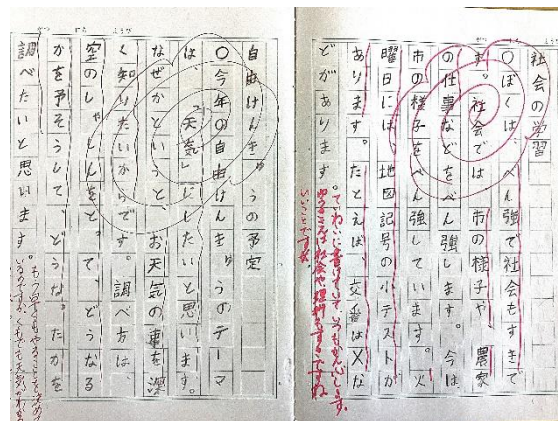 社会の学習
○ぼくは、べん強で社会もすきで
す。社会では市の様子や農家
の仕事などをべん強します。今は、
市の様子をべん強しています。火
曜日には、地図記号の小テストが
あります。たとえば、交番はXな
どがあります。
ていねいに書けていて、いつもかん心します。
は社会や理科も
いいことですね。
自由けんきゅうの予定
○今年の自由けんきゅうのテーマ
は、「天気」にしたいと思います。
なぜかというと、お天気の事を深
く知りたいからです。調べ方は、
空のしゃしんをとって、どうなる
かを予そうして、どうなったかを
調べたいと思います。
もう